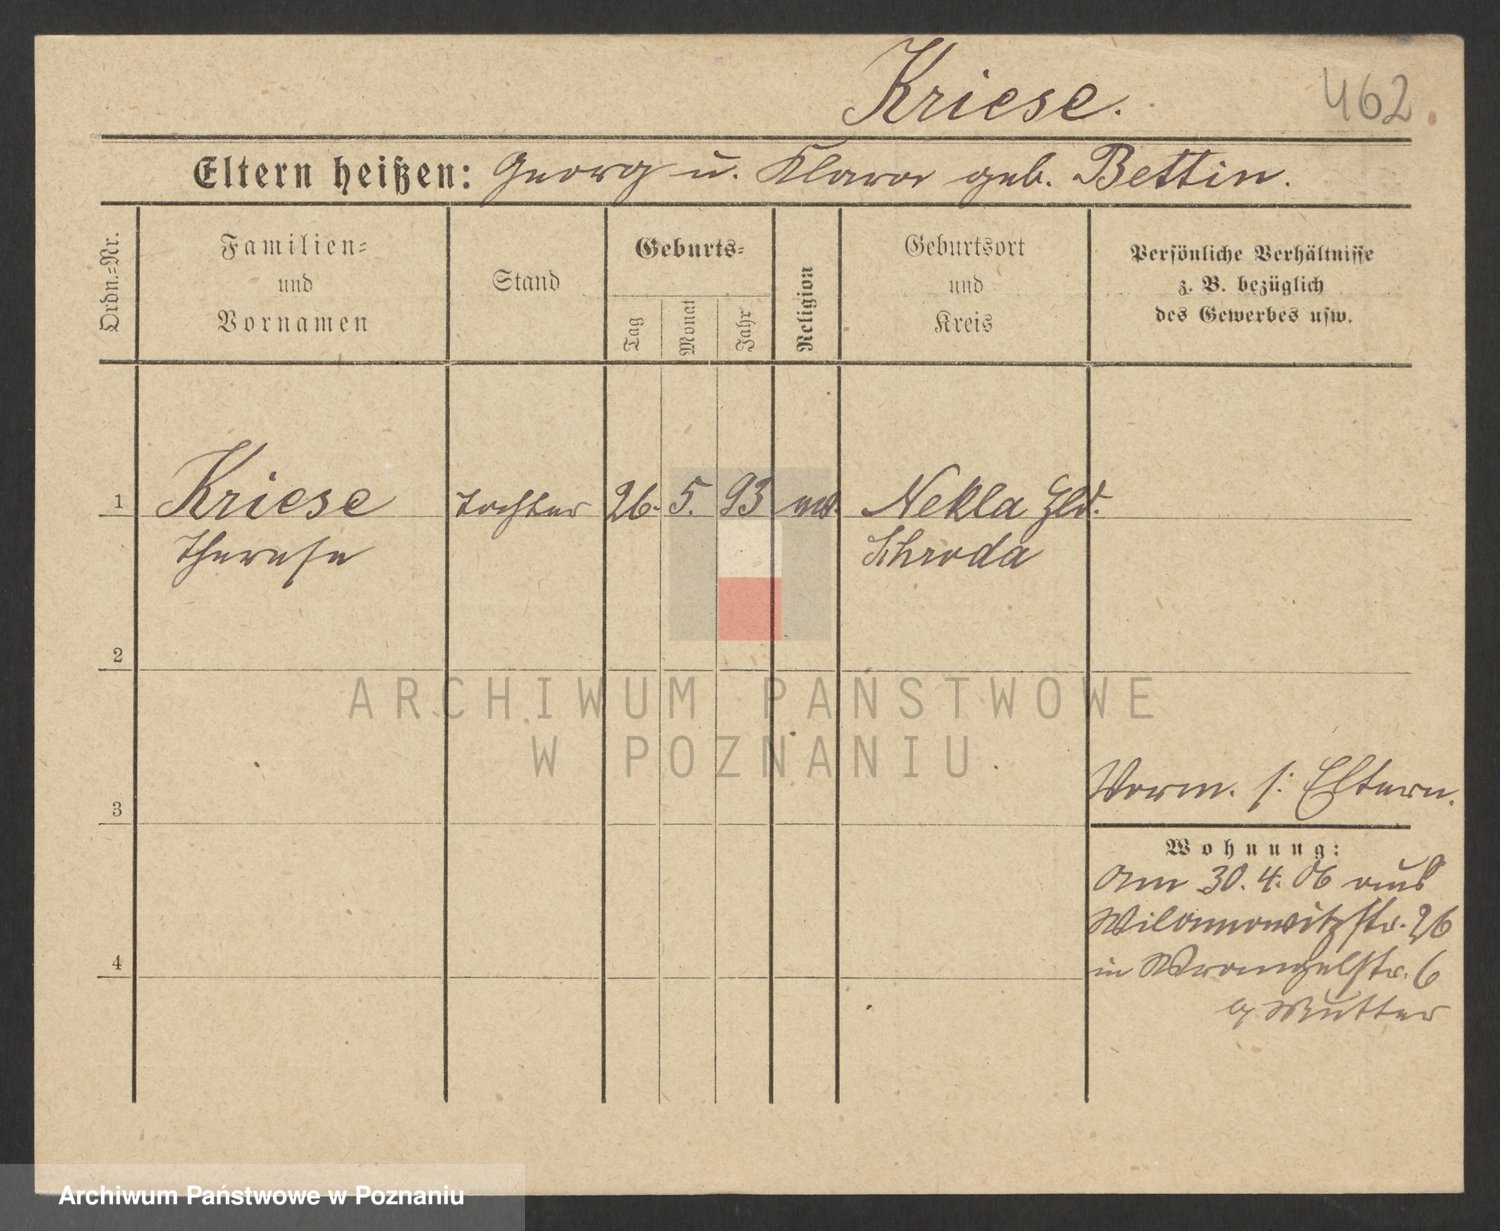 Kriese.
462
Eltern heißen: Georg u. Klara geb. Bettin.
Ordn.=Nr.
Familien=
und
Vornamen
Stand
Geburts=
Tag
Monat
Jahr
Religion
Geburtsort
und
Kreis
Persönliche Verhältnisse
z. B. bezüglich
des Gewerbes usw.
1
Kriese
Therese
Tochter
26.
5.
93
Nekla Hld.
Schroda
2
3
4
Vorm. s: Eltern.
Wohnung:
Am 30.4.06 aus
Wilamowitzstr. 26
in Wrangelstr. 6
Mutter
ARCHIWUM PAŃSTWOWE
W POZNANIU
Archiwum Państwowe w Poznaniu